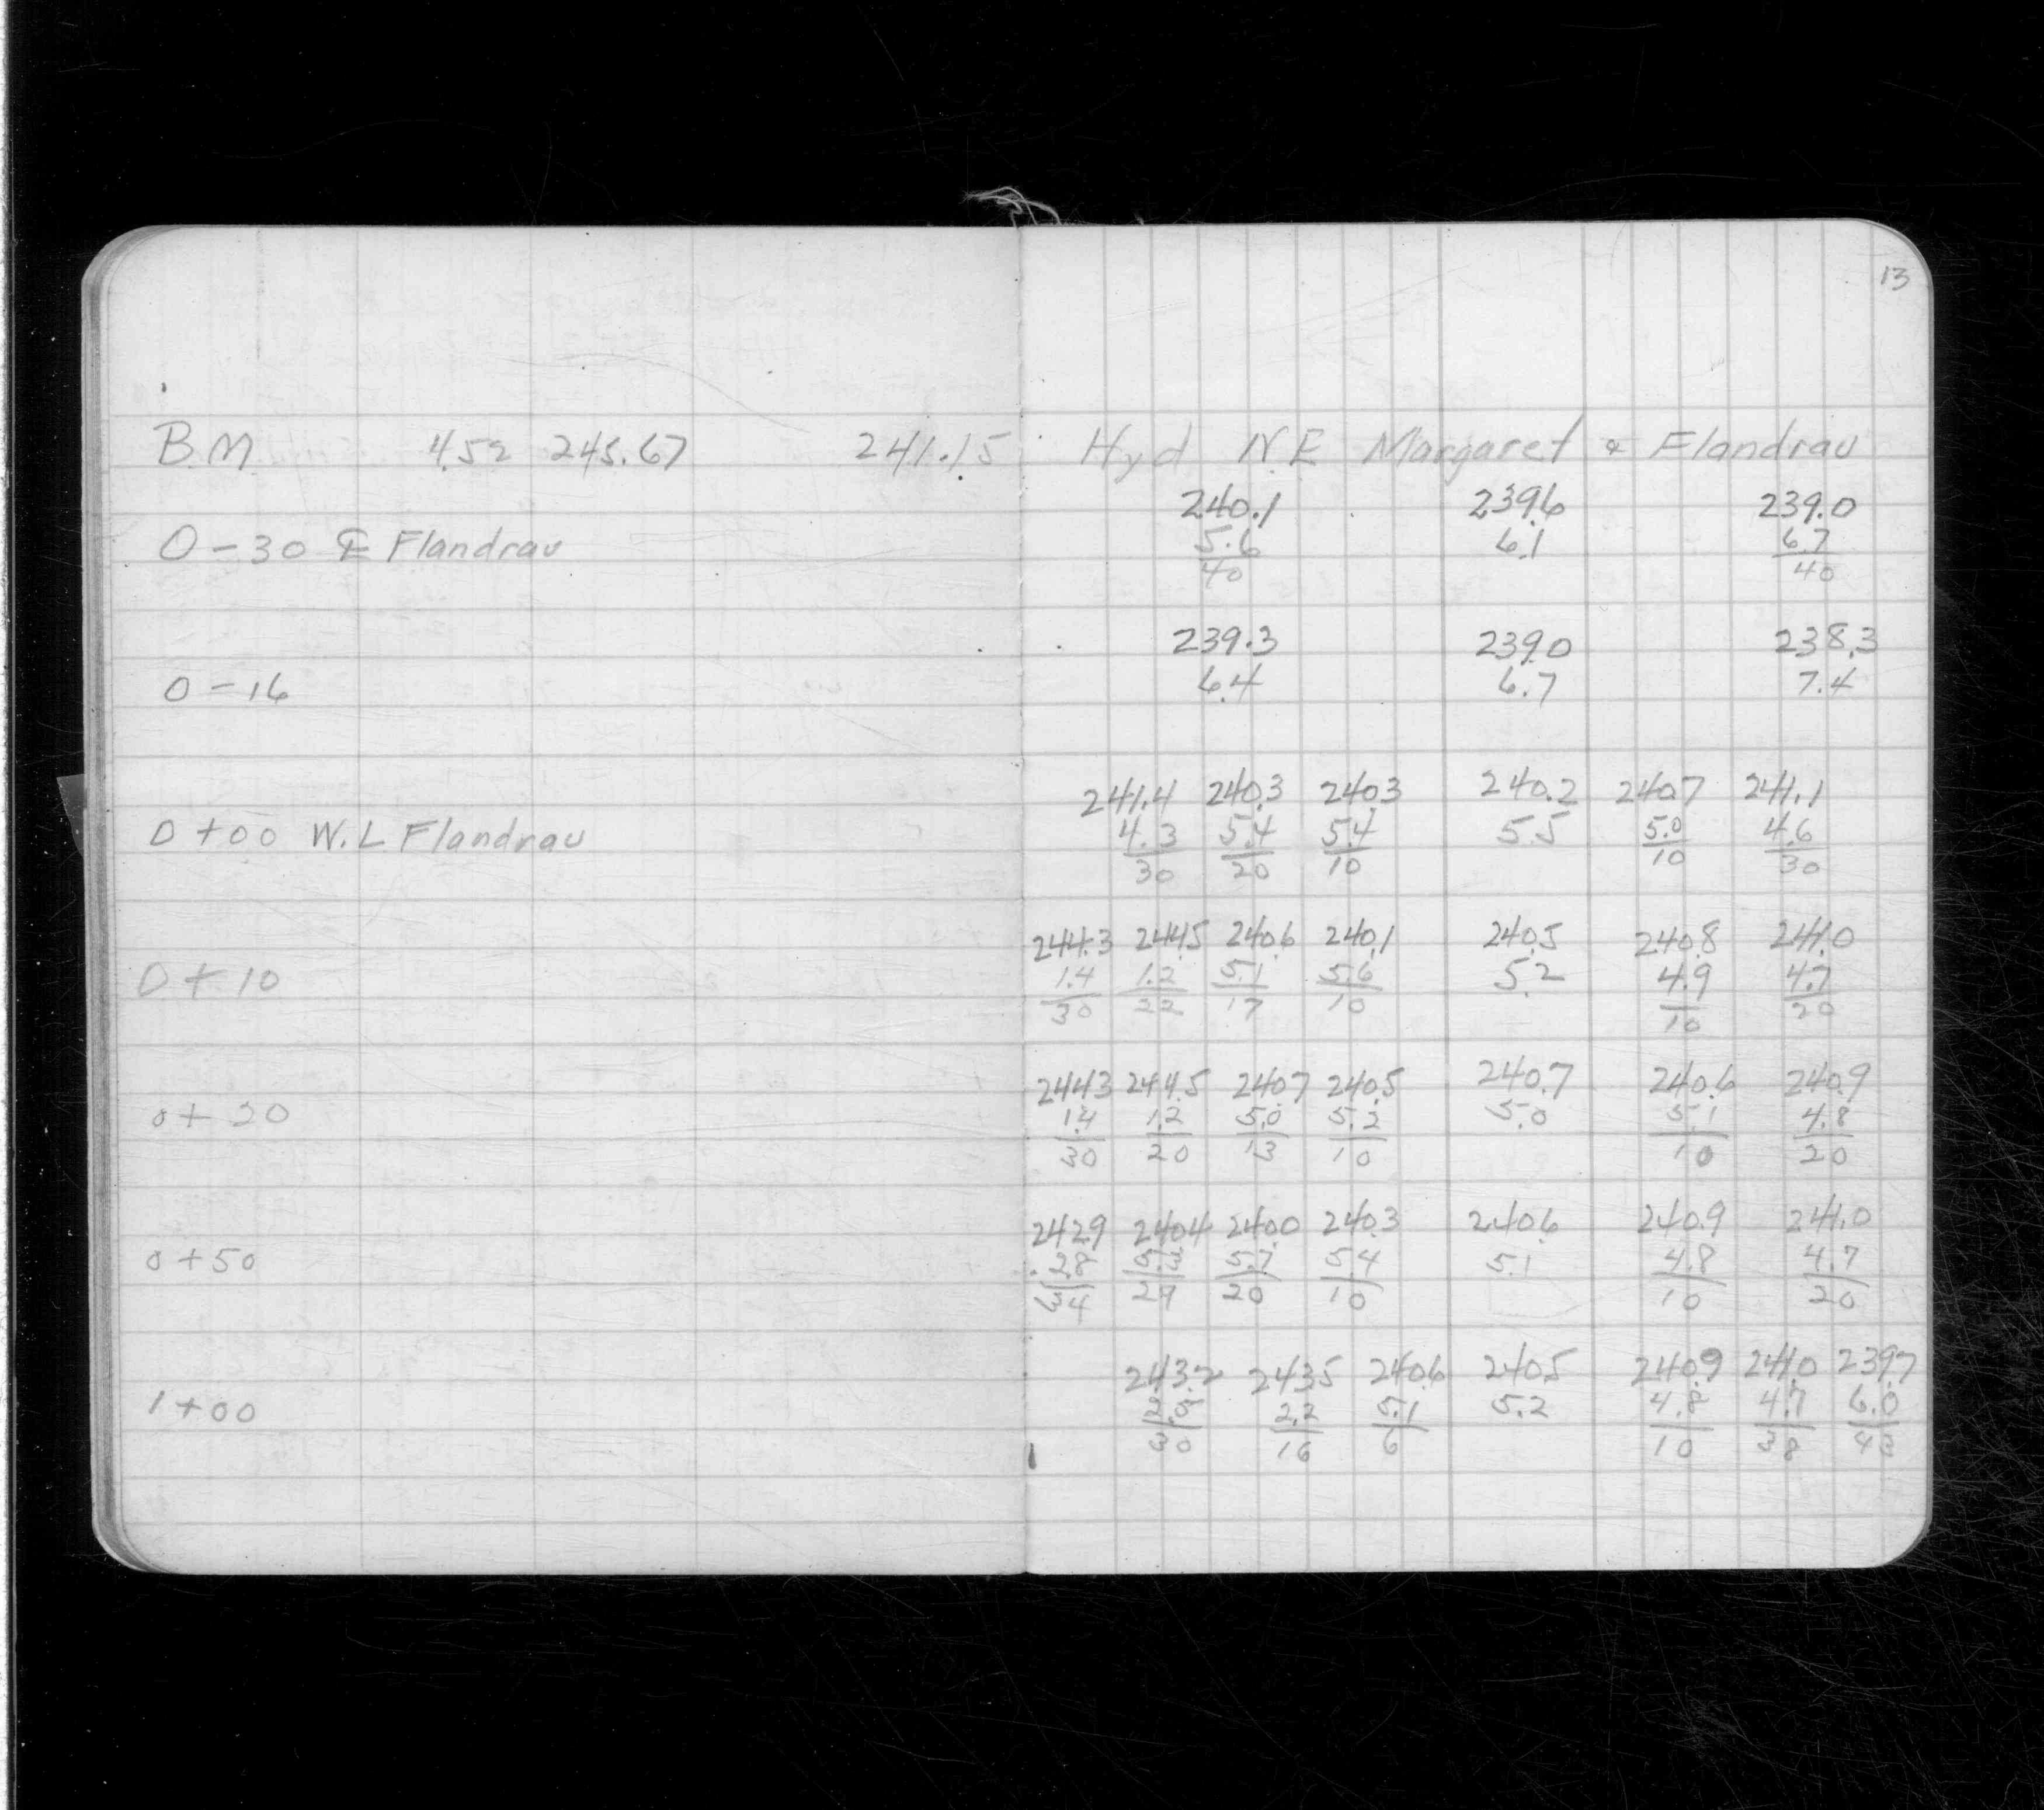 13
B.M. 4.52 245.67 241.15 Hyd N.E Margaret & Flandrau
240.1 239.6 239.0
0-30 ℄ Flandrau 5.6 6.1 6.7
40 40
239.3 239.0 238.3
0-16 6.4 6.7 7.4
241.4 240.3 240.3 240.2 240.7 241.1
0+00 W.L Flandrau 4.3 5.4 5.4 5.5 5.0 4.6
30 20 10 10 30
244.3 244.5 240.6 240.1 240.5 240.8 241.0
0+10 1.4 1.2 5.1 5.6 5.2 4.9 4.7
30 22 17 10 10 20
244.3 244.5 240.7 240.5 240.7 240.6 240.9
0+20 1.4 1.2 5.0 5.2 5.0 5.1 4.8
30 20 13 10 10 20
242.9 240.4 240.0 240.3 240.6 240.9 241.0
0+50 2.8 5.3 5.7 5.4 5.1 4.8 4.7
34 20 10 10 20
243.2 243.5 240.6 240.5 240.9 241.0 239.7
1+00 2.2 5.1 5.2 4.8 4.7 6.0
30 16 6 10 38 43